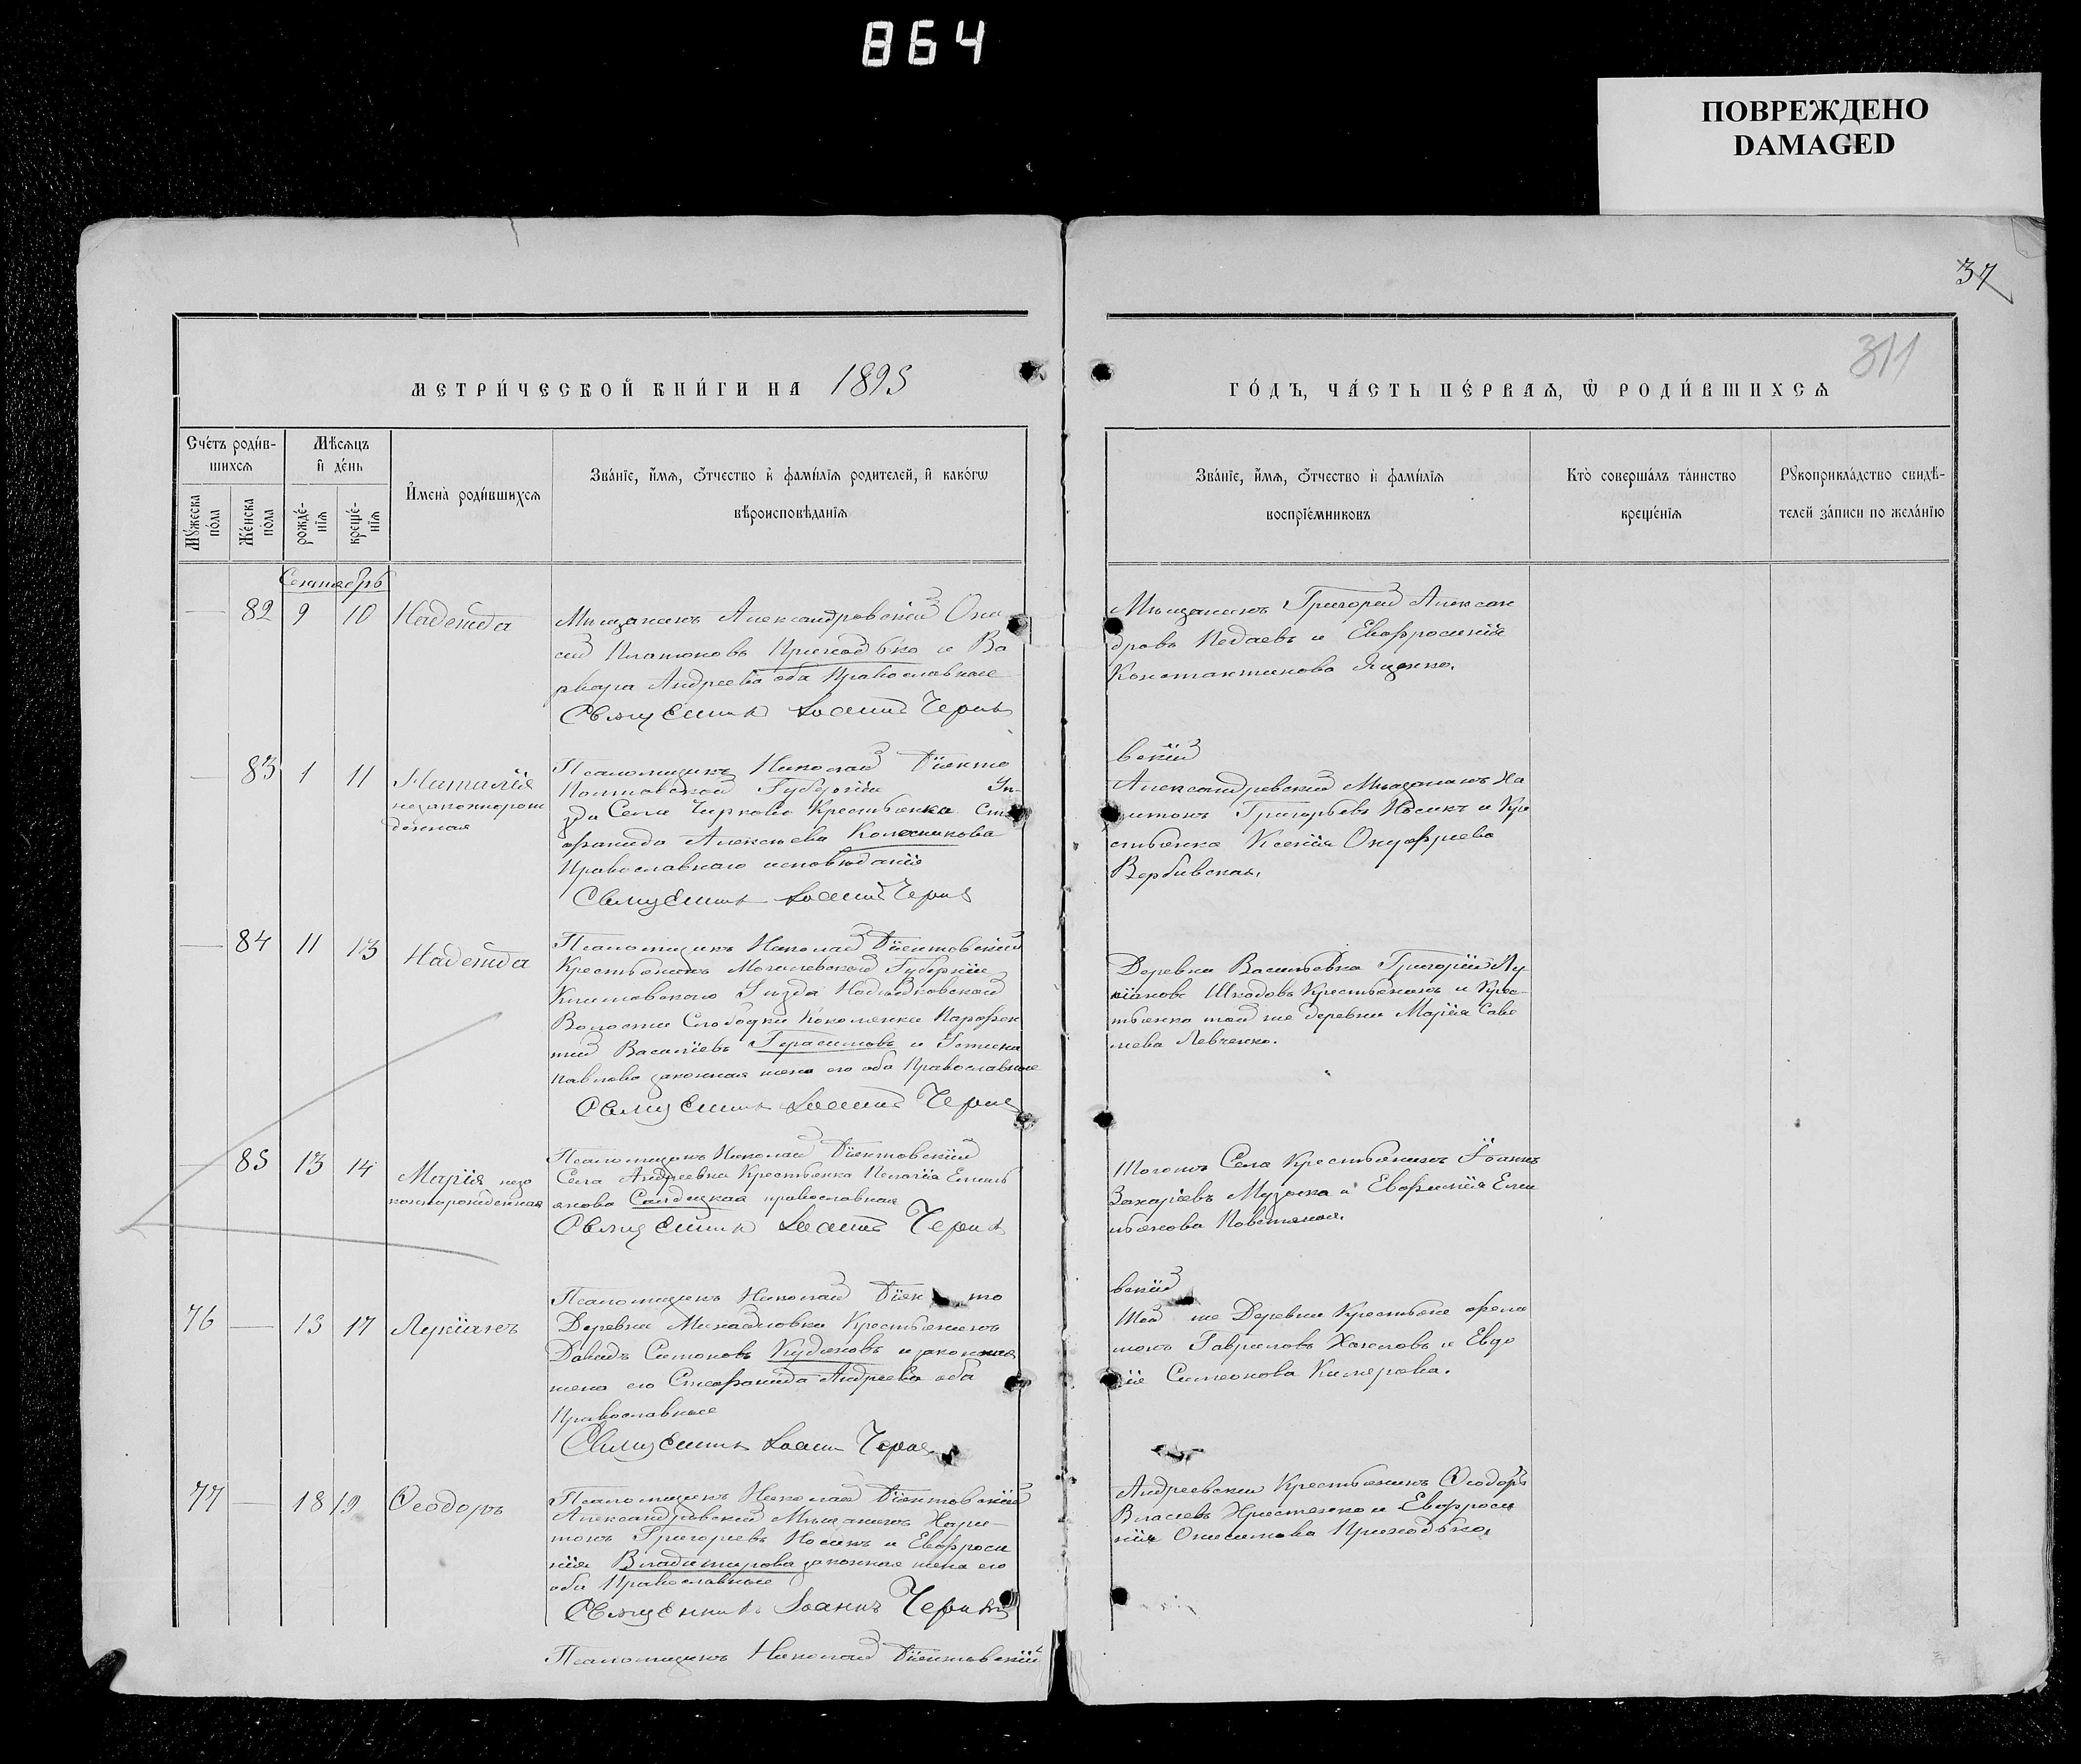 864
ПОВРЕЖДЕНО
DAMAGED
37
311
МЕТРИ́ЧЕСКОЙ КНИ́ГИ НА 1895
ГО́ДЪ, ЧА́СТЬ ПЕ́РВАѦ, Ѡ҆ РОДИ́ВШИХСѦ
Сче́тъ роди́в-
шихсѧ
Мѣ́сѧцъ
и҆ де́нь
И҆мена̀ роди́вшихсѧ
Зва́нїе, и҆́мѧ, ѻ҆́тчество и҆ фами́лїѧ родителей, и҆ како́гѡ
вѣроисповѣ́данїѧ
Мꙋ́жеска
по́ла
Же́нска
пола
рожде́-
нїѧ
креще́-
нїѧ
Зва́нїе, и҆́мѧ, ѻ҆́тчество и҆ фами́лїѧ
воспрїе́мниковъ
Кто̀ соверша́лъ та́инство
креще́нїѧ
Рꙋкоприкла́дство свидѣ́-
телей за́писи по жела́нїю
Сентябрь
82 9 10 Надежда
Мѣщанинъ Александровскій Они
сий Платоновъ Приходько и Ва
рвара Андреева оба Православные
Священникъ Іоаннъ Черня
Мѣщанинъ Григорий Алексан
дровъ Педаевъ и Евфросинія
Константинова Яценко.
83 1 11 Наталія
незаконнорож
денная
Псаломщикъ Николай Діенто
Полтавской Губерніи
Села Чиркова Крестьянка Сте
фанида Алексеева Колесникова
Православнаго исповѣданія
Священникъ Іоаннъ Черня
вскій
Александровский Мѣщанинъ Ха
ритонъ Григорьевъ Носикъ и Кре
стьянка Ксенія Онуфриева
Вербивская.
84 11 13 Надежда
Псаломщикъ Николай Діентовский
Крестьянинъ Могилевской Губерніи
Климовского Уѣзда
Волости Слободки Парфен
тий Василіевъ Герасимовъ и Устина
Павлова законная жена его оба Православные
Священникъ Іоаннъ Черня
Деревни Васильевка Григорій Лу
кіановъ Шкодовъ Крестьянинъ и Крес-
тьянка той же деревни Марія Саве
лева Левченко.
85 13 14 Марія незо
коннорожденная
Псаломщикъ Николай Діентовскій
Села Андреевка Крестьянка Пелагія Емель
янова православная
Священникъ Іоаннъ Черня
Тогожъ Села Крестьянинъ Іоаннъ
Захаріевъ Музыка и Евфимія Еме
льянова
76 13 17 Лукіанъ
Псаломщикъ Николай Діен то
вскій
Деревни Михайловки Крестьянинъ
Давидъ Симоновъ Кудиновъ и законная
жена его Стефанида Андреева оба
Православные
Священникъ Іоанн Черня
Той же Деревни Крестьяне
Гавриловъ и Евдо
кія Симеонова
77 18 19 Ѳеодоръ
Псаломщикъ Николай Діентовскій
Александровский Мѣщанинъ Хари-
тонъ Григорьевъ Носикъ и Евфроси
нія Владимирова законная жена его
оба Православные
Священникъ Іоаннъ Черня
Андреевский Крестьянинъ Ѳеодоръ
Власіевъ Христенко и Евфроси
нія Онисимова Приходько.
Псаломщикъ Николай Діентовскій